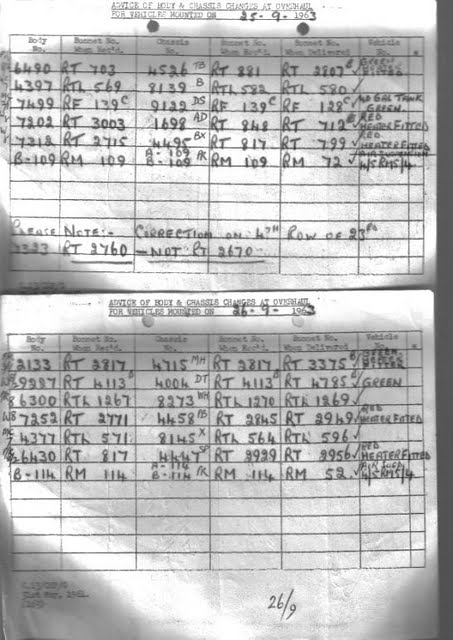 ADVICE OF BODY & CHASSIS CHANGES AT OVERHAUL
FOR VEHICLES MOUNTED ON 25-9-1963
Body No. Bonnet No. When Rec'd. Chassis No. Bonnet No. When Delivered Vehicle
6490 RT 703 4526 TB RT 881 RT 2807
4397 RTL 569 8139 B RTL 582 RTL 580 ✓
7499 RF 139 C 9129 DS RF 139 C RF 128 C ✓ 40 GAL TANK GREEN
7202 RT 3003 1698 AD RT 848 RT 712 ✓ RED HEATER FITTED
7312 RT 2715 4495 BX RT 817 RT 799 ✓ RED HEATER FITTED
B-109 RM 109 A-109 B-109 RM 109 RM 72 ✓ 4/5RM5/4
PLEASE NOTE:- CORRECTION ON 4TH ROW OF 23RD
7323 RT 2760 - NOT RT 2670 -
ADVICE OF BODY & CHASSIS CHANGES AT OVERHAUL
FOR VEHICLES MOUNTED ON 26-9-1963
Body No. Bonnet No. When Rec'd. Chassis No. Bonnet No. When Rec'd. Bonnet No. When Delivered Vehicle No.
2133 RT 2817 4715 MH RT 2817 RT 3375
9297 RT 4113 4004 DT RT 4113 RT 4785 GREEN
6300 RTL 1267 8273 WH RTL 1270 RTL 1269 ✓
W8 7252 RT 2771 4458 RT 2845 RT 2949 ✓ RED HEATER FITTED
4377 RTL 571 8145 X RTL 564 RTL 596 ✓
6430 RT 817 4447 SP RT 2929 RT 2956 ✓ RED HEATER FITTED
B-114 RM 114 A-114 B-114 RM 114 RM 52 ✓ 4/5RM5/4
31st Mar. 1961.
26/9